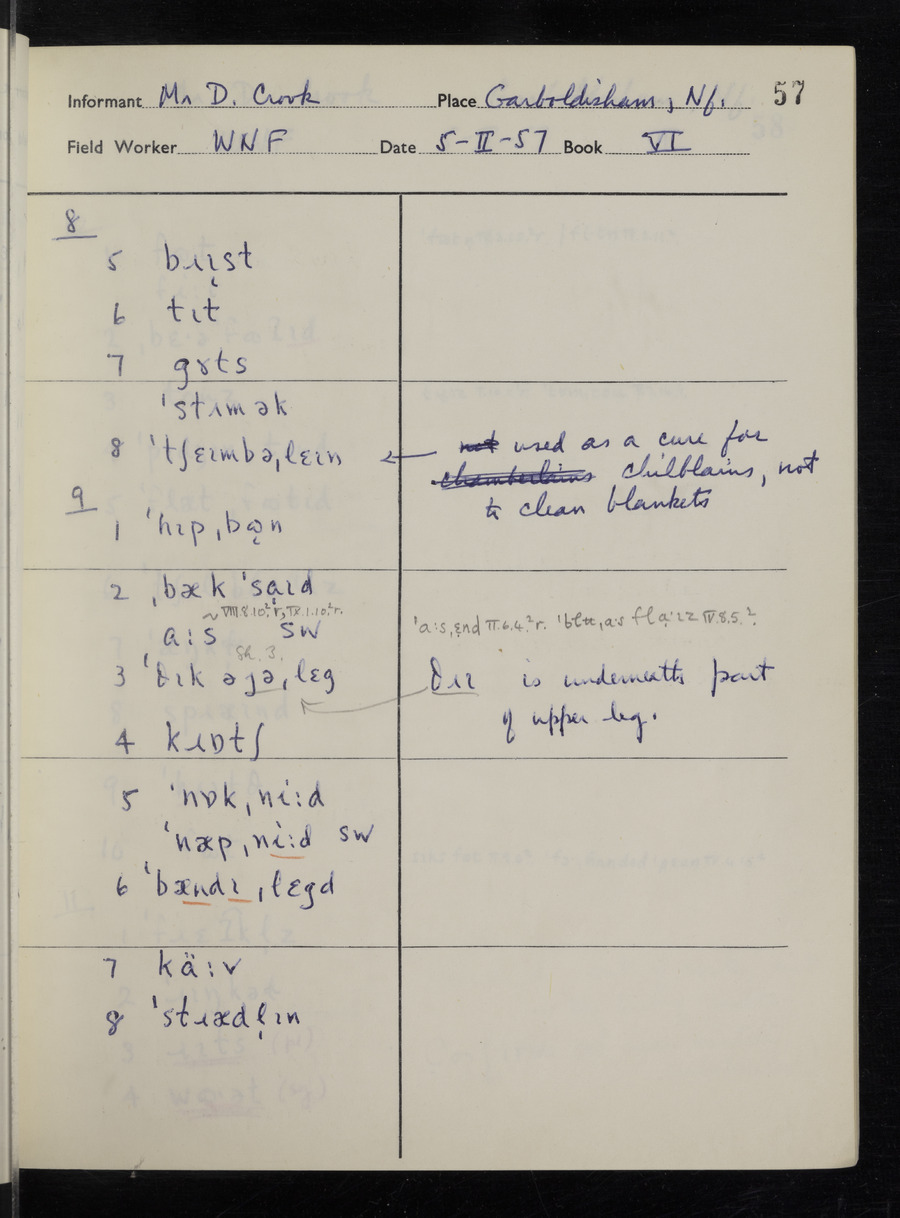 Informant Mr D. Crook Place Garboldisham, Nf. 57
Field Worker WNF Date 5-II-57 Book VI
8
5 bɹɪ̞st
6 tɪt
7 gɤts
ˈstɪmək
8 ˈtʃɛɪmbəˌlɛɪn ← not used as a cure for
chamberlains chilblains, not
to clean blankets
9
1 ˈhɪpˌbo̜n
2 ˌbækˈsaɪd
~ VIII.8.10.²r, IX.1.10.²r.
a:s sw
ˈa:sˌɛnd II.6.4.²r. IV.8.5.²
sh. 3.
3 ˈθɪk əɟəˌlɛg
θɪɪ is underneath part
of upper leg.
4 kɹɒtʃ
5 ˈnɒkˌni:d
ˈnæpˌni:d sw
6 ˈbændɪˌlɛgd
7 kä:v
8 ˈstɹædl̩ɪn